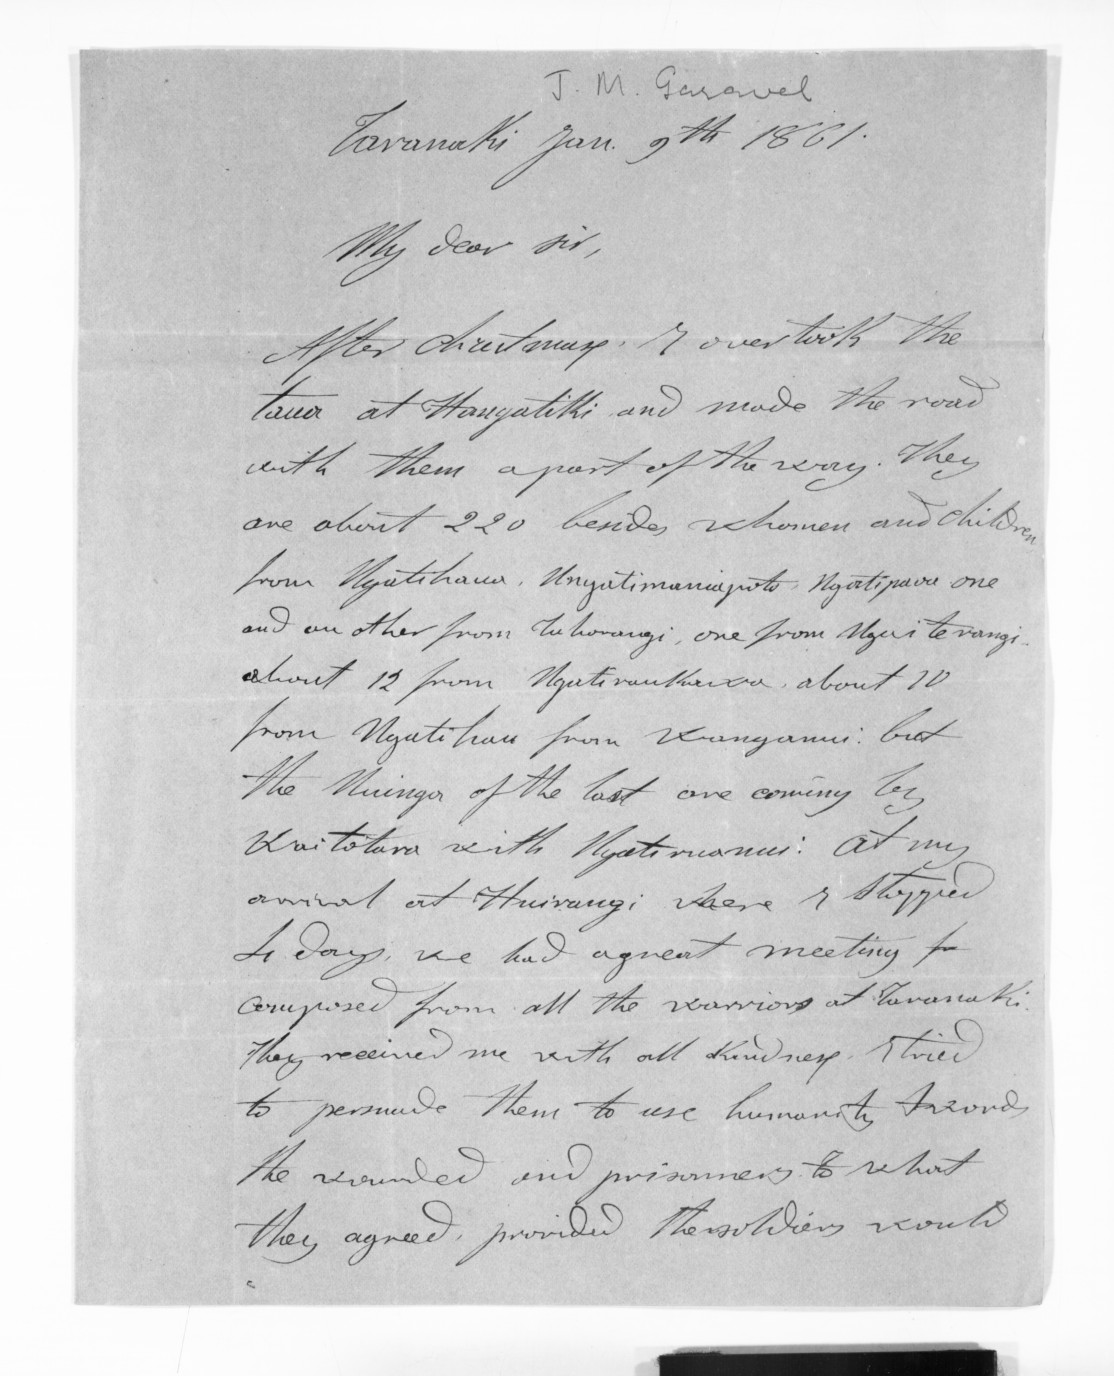 J. M. Garavel
Taranaki Jan. 9th 1861.
My dear sir,
After christmass. I overtook the
taua at Hangatiki and made the road
with them a part of the way. They
are about 220 besides whomen and children
from Ngatihaua, Ungatimaniapoto, Ngatipaoa one
and an other from Tuhorangi, one from Ngaiterangi.
about 12 from Ngatiraukawa, about 10
from Ngatihau from Wanganui: but
the Nuinga of the last are coming by
Waitotara with Ngatiruanui: At my
arrival at Huirangi where I stopped
4 days, we had agreat meeting
composed from all the warriors at Taranaki.
They received me with all kindness. I tried
to persuade them to use humanity towards
the wounded and prisonners. To what
they agreed, provided the soldiers would